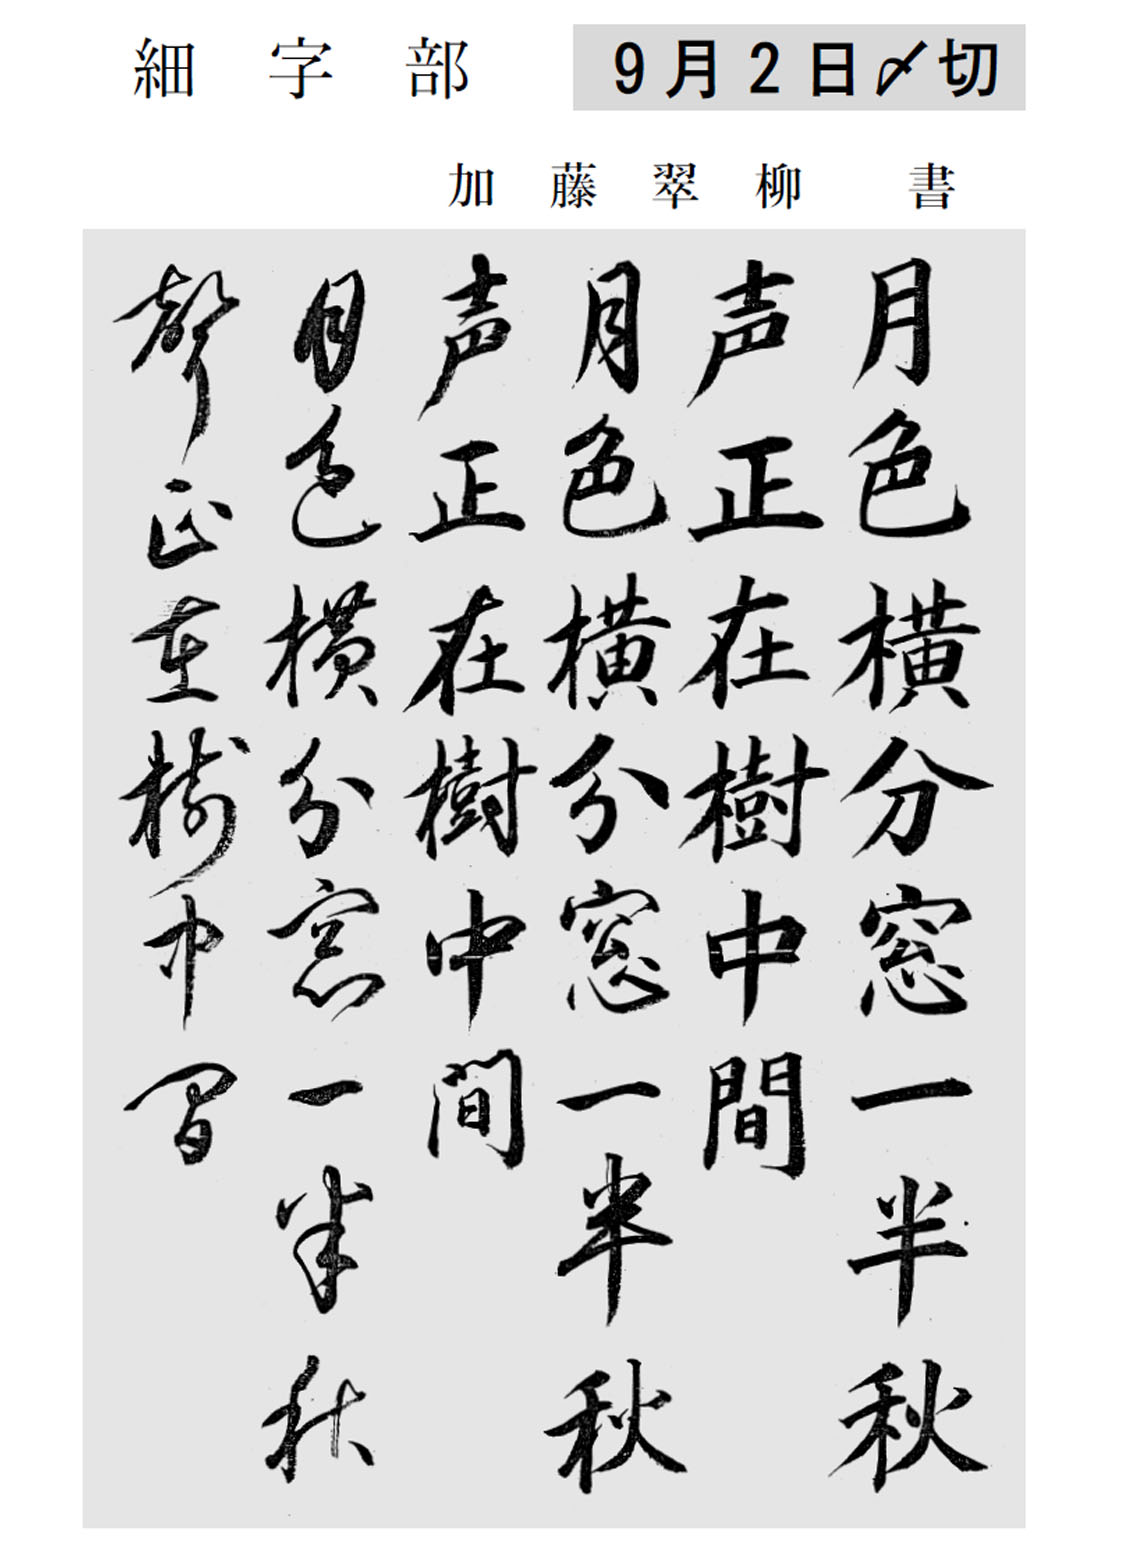 細字部
9月2日〆切
加藤翠柳 書
月色橫分窓一半秋
声正在樹中間
月色橫分窓一半秋
声正在樹中間
月色横分窓一半秋
聲正在樹中間